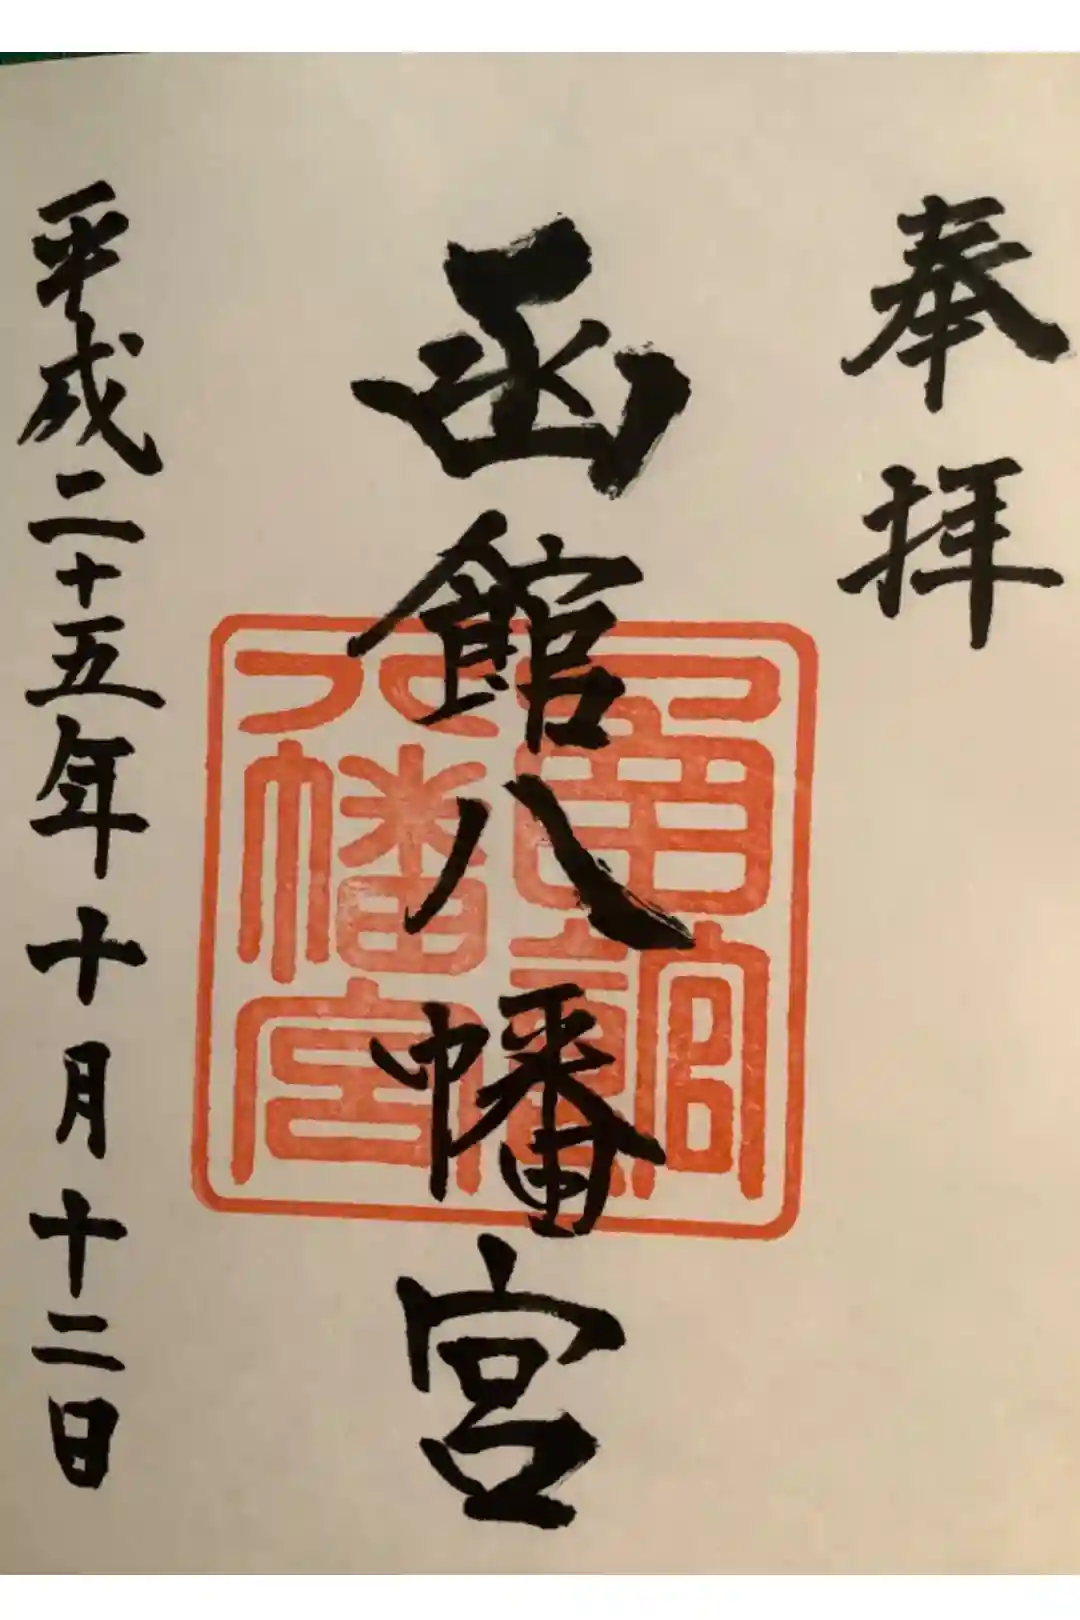 奉拝
函館八幡宮
函館
八幡宮
平成二十五年十月十二日